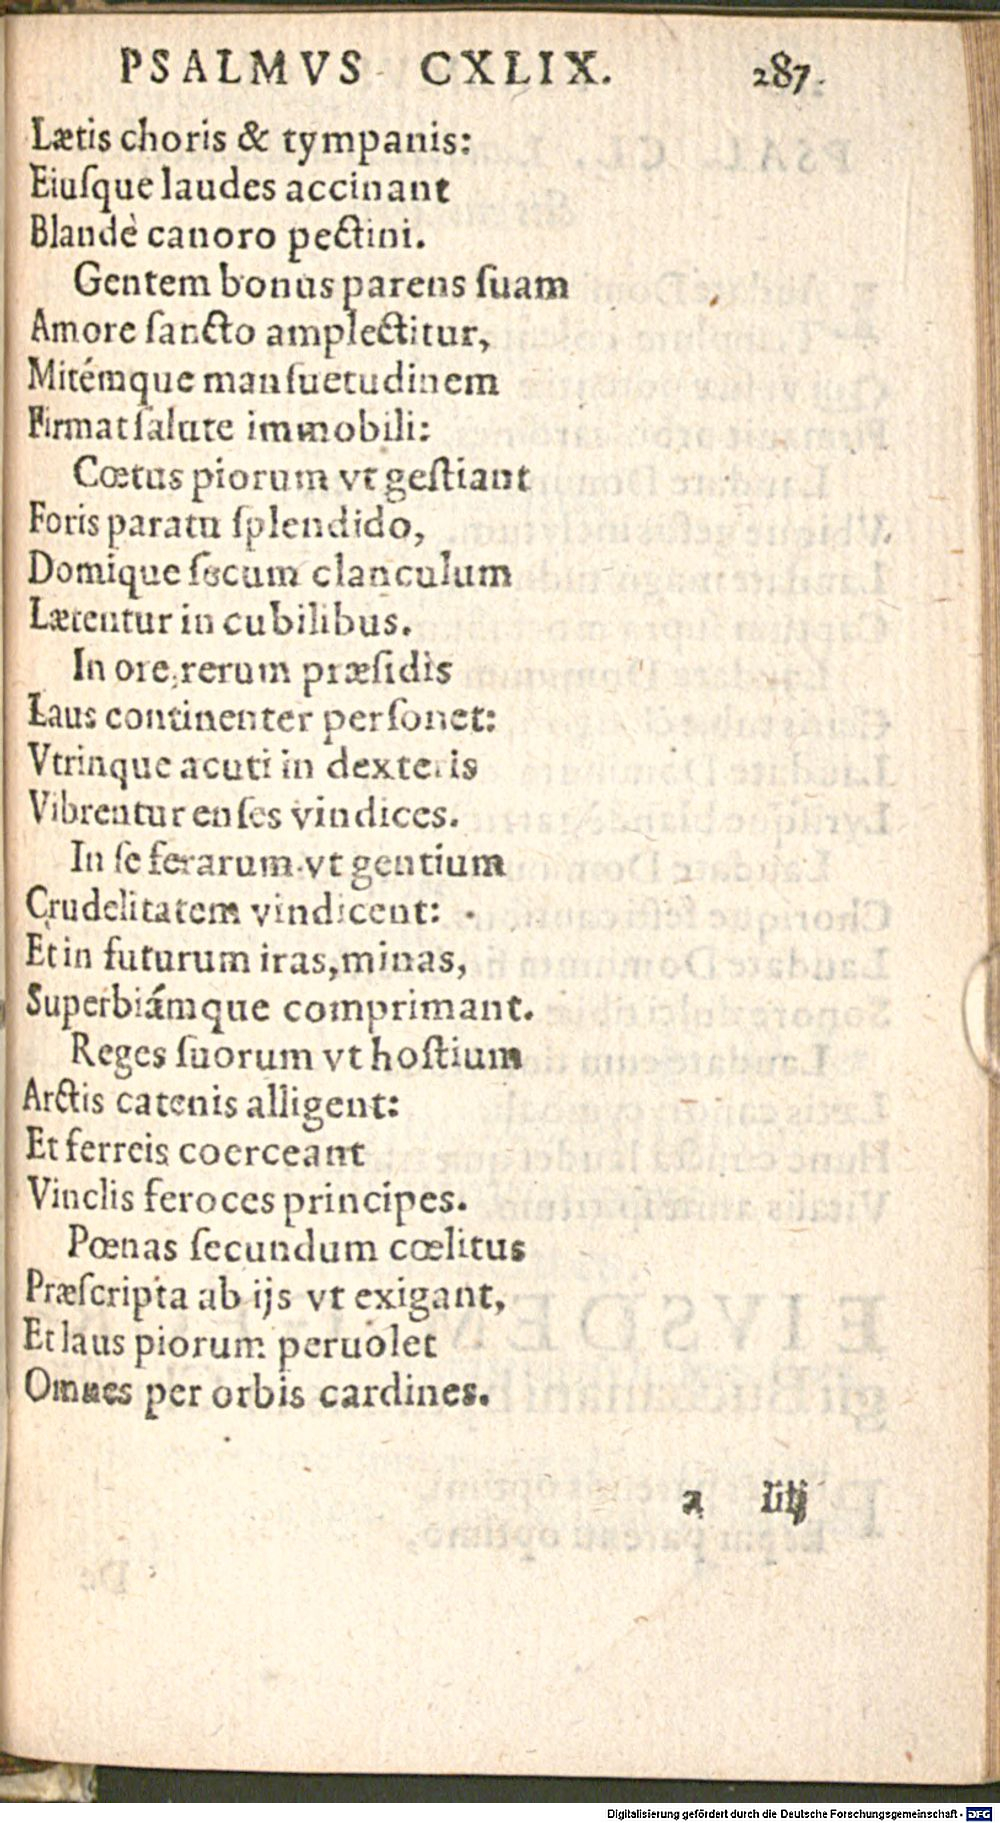 PSALMVS CXLIX. 287.
Lætis choris & tympanis:
Eiuſque laudes accinant
Blandè canoro pectini.
Gentem bonus parens ſuam
Amore ſancto amplectitur,
Mitémque manſuetudinem
Firmat ſalute immobili:
Cœtus piorum vt geſtiant
Foris paratu ſplendido,
Domique ſecum clanculum
Lætentur in cubilibus.
In ore rerum præſidis
Laus continenter perſonet:
Vtrinque acuti in dexteris
Vibrentur enſes vindices.
In ſe ferarum vt gentium
Crudelitatem vindicent:
Et in futurum iras, minas,
Superbiámque comprimant.
Reges ſuorum vt hoſtium
Arctis catenis alligent:
Et ferreis coerceant
Vinclis feroces principes.
Pœnas ſecundum cœlitus
Præſcripta ab ijs vt exigant,
Et laus piorum peruolet
Omnes per orbis cardines.
Digitalisierung gefördert durch die Deutsche Forschungsgemeinschaft - DFG